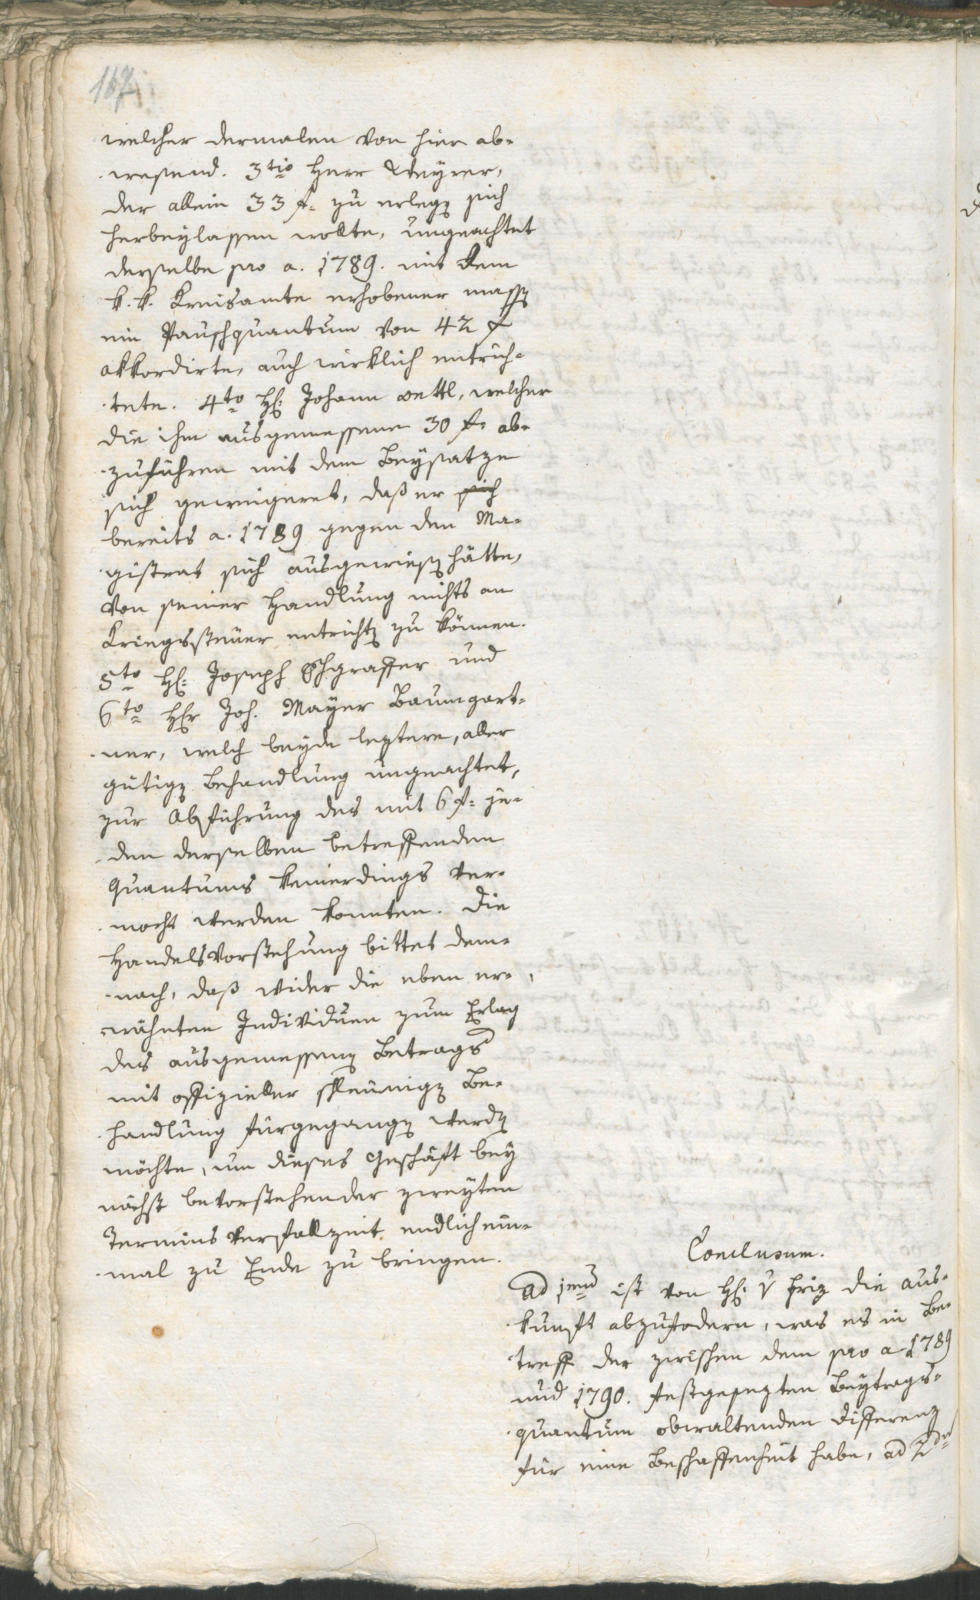 167
welcher dermalen von hier ab-
wesend. 3tio Herr Mayrer,
der allein 33 f. zu erlegen sich
herbeylassen wollte, ungeachtet
derselbe pro a. 1789. mit dem
k. k. Kreisamte erhobener massen
ein Pauschquantum von 42 f
akkordirte, auch wirklich entrich-
tete. 4to H: Johann Oettl, welcher
die ihm ausgemessene 30 f. ab-
zuführen mit dem Beysatze
sich geweigeret, daß er sich
bereits a. 1789 gegen den Ma-
gistrat sich ausgewiesen hätte,
von seiner Handlung nichts an
Kriegssteuer entrichten zu können.
5to H: Joseph Gschgrasser und
6to Herr Joh. Mayer Baumgart-
ner, welch beyde leztere, aller
gütigen Behandlung ungeachtet,
zur Abführung des mit 6 f. je-
den derselben betreffenden
Quantums keinerdings ver-
mocht werden konnten. Die
Handelsvorstehung bittet dem-
nach, daß wider die eben er-
wähnten Individuen zum Erlag
des ausgemessenen Betrags
mit offizieller schleunigen Be-
handlung fürgegangen werden
möchte, um dieses Geschäft bey
nächst bevorstehender zweyten
Termins Verfallzeit endlich ein-
mal zu Ende zu bringen.
Conclusum.
Ad 1mum ist von H: v Friz die Aus-
kunft abzufodern, was es in Be-
treff der zwischen dem pro a. 1789
und 1790. festgesezten Beytrags-
quantum obwaltenden Differenz
für eine Beschaffenheit habe, ad 2dum